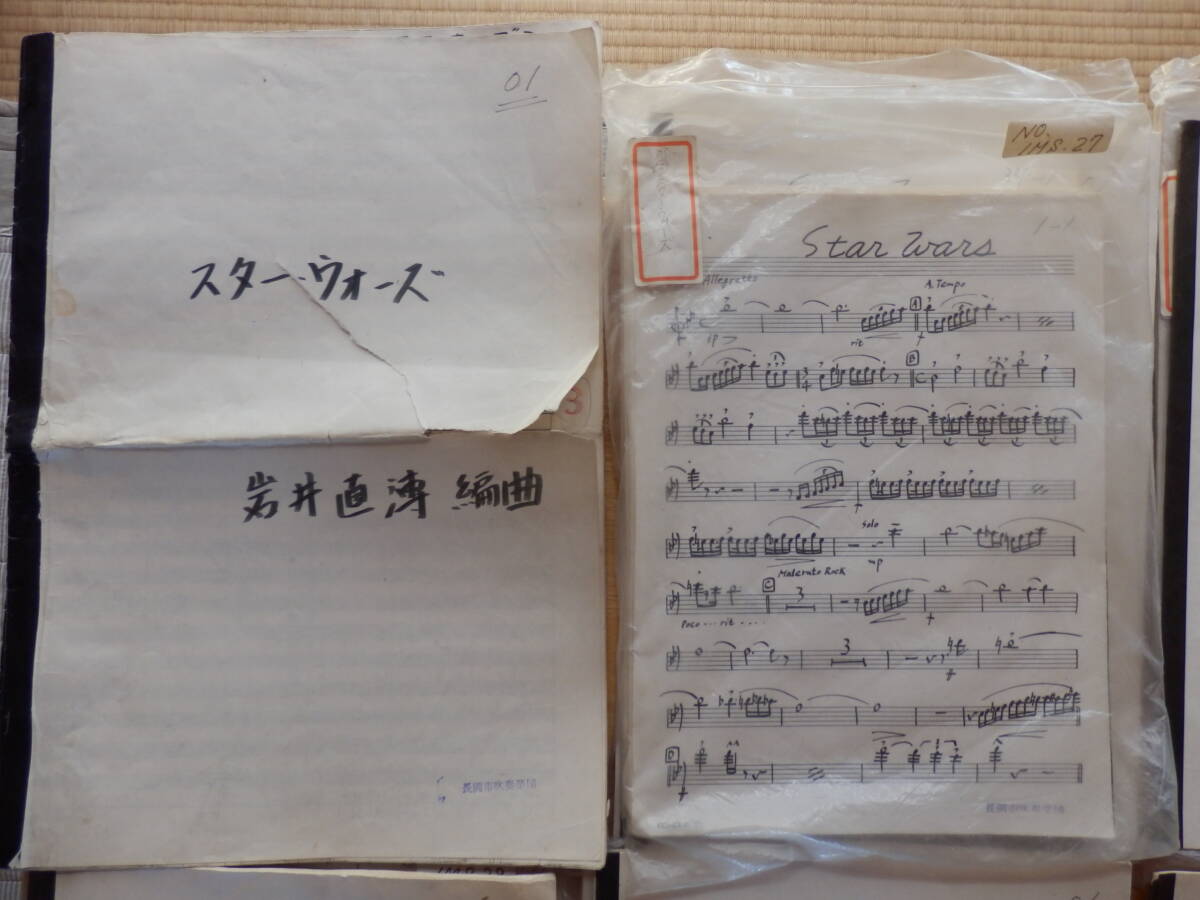 01
スター・ウォーズ
3
岩井直溥 編曲
長岡市吹奏楽団
NO.
IMS.27
Star Wars
1-1
Allegretto
A. Tempo
A
rit
B
Solo
mp
Moderato Rock
C
3
Poco ... rit ....
3
D
長岡市吹奏楽団